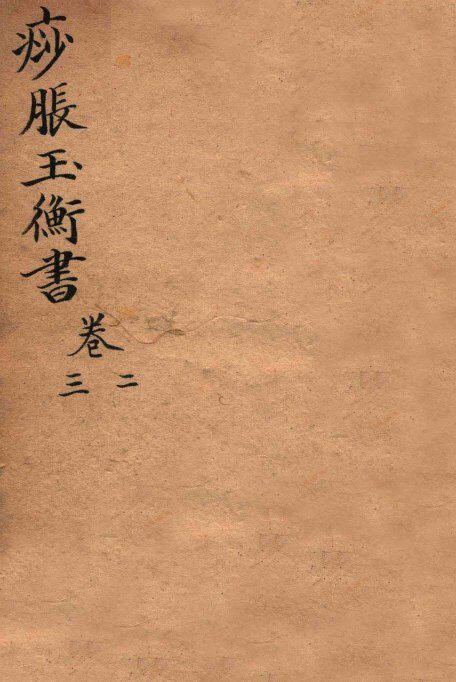 痧脹玉衡書
卷二
三